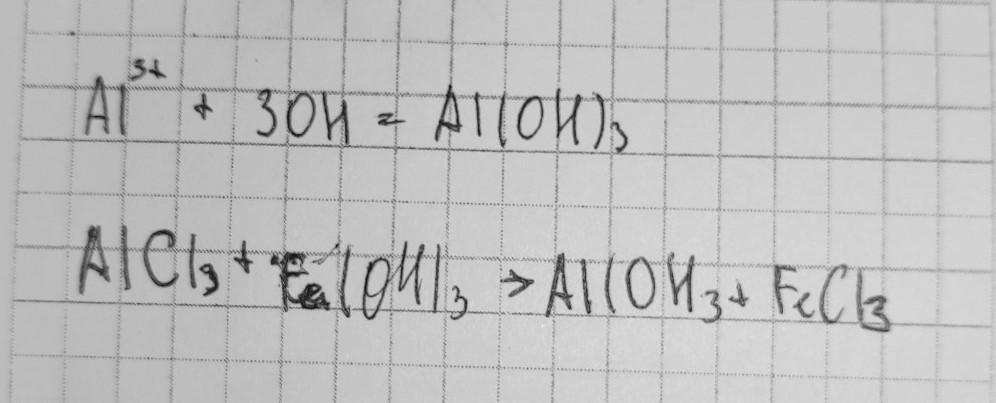 Al³⁺ + 3OH = Al(OH)₃
AlCl₃ + Fe(OH)₃ → Al(OH₃ + FeCl₃